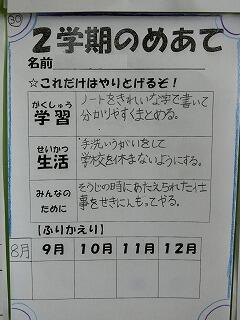 30
2学期のめあて
名前
☆これだけはやりとげるぞ！
がくしゅう
学習
ノートをきれいな字で書いて
分かりやすくまとめる。
せいかつ
生活
手洗いうがいをして
学校を休まないようにする。
みんなの
ために
そうじの時にあたえられた仕
事をせきにんもってやる。
【ふりかえり】
8月 9月 10月 11月 12月